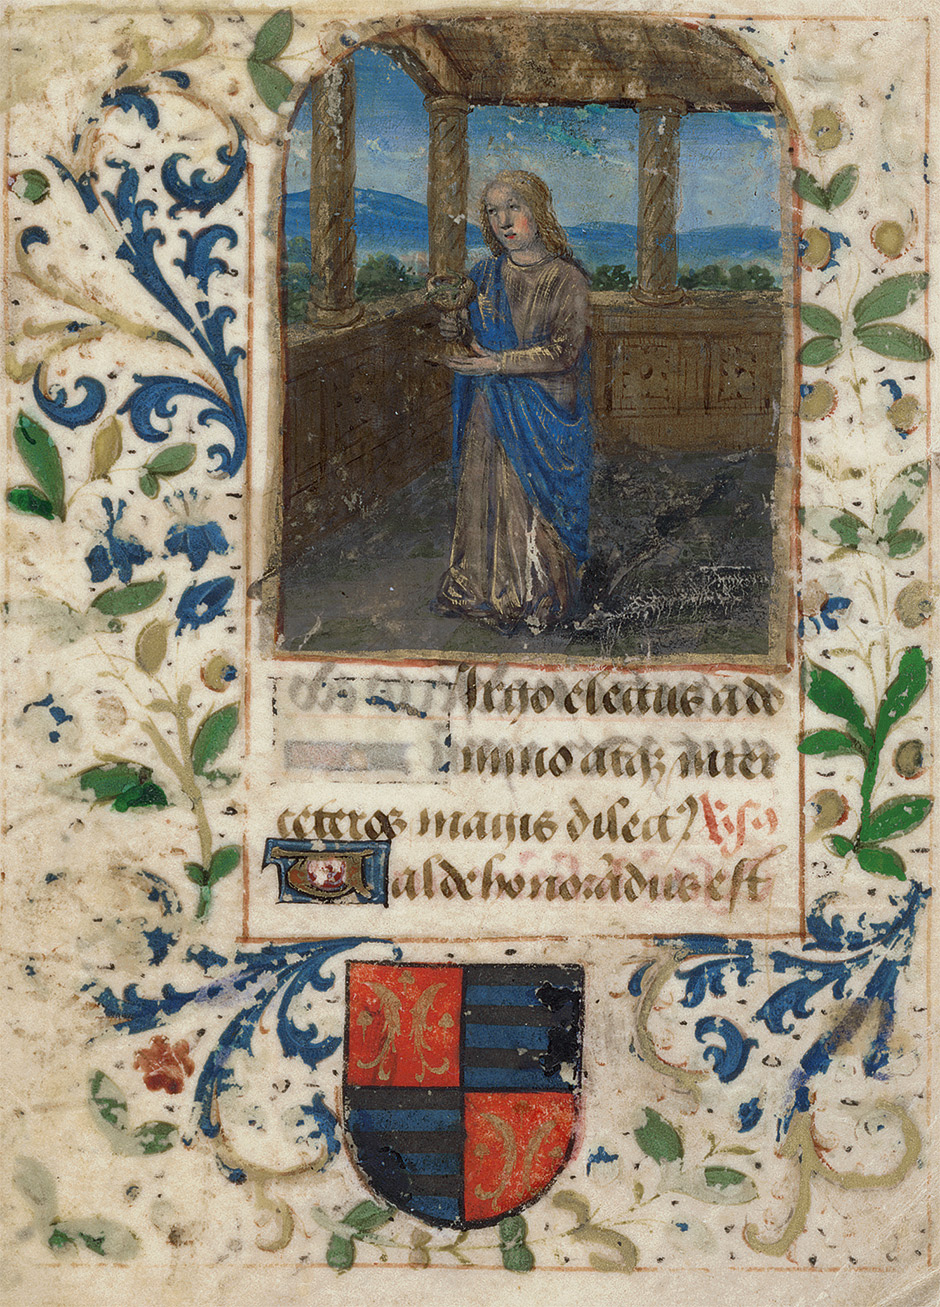 irgo electus a do
mino atqꝫ inter
ceteros magis dilectꝰ
Ualde honorādus est